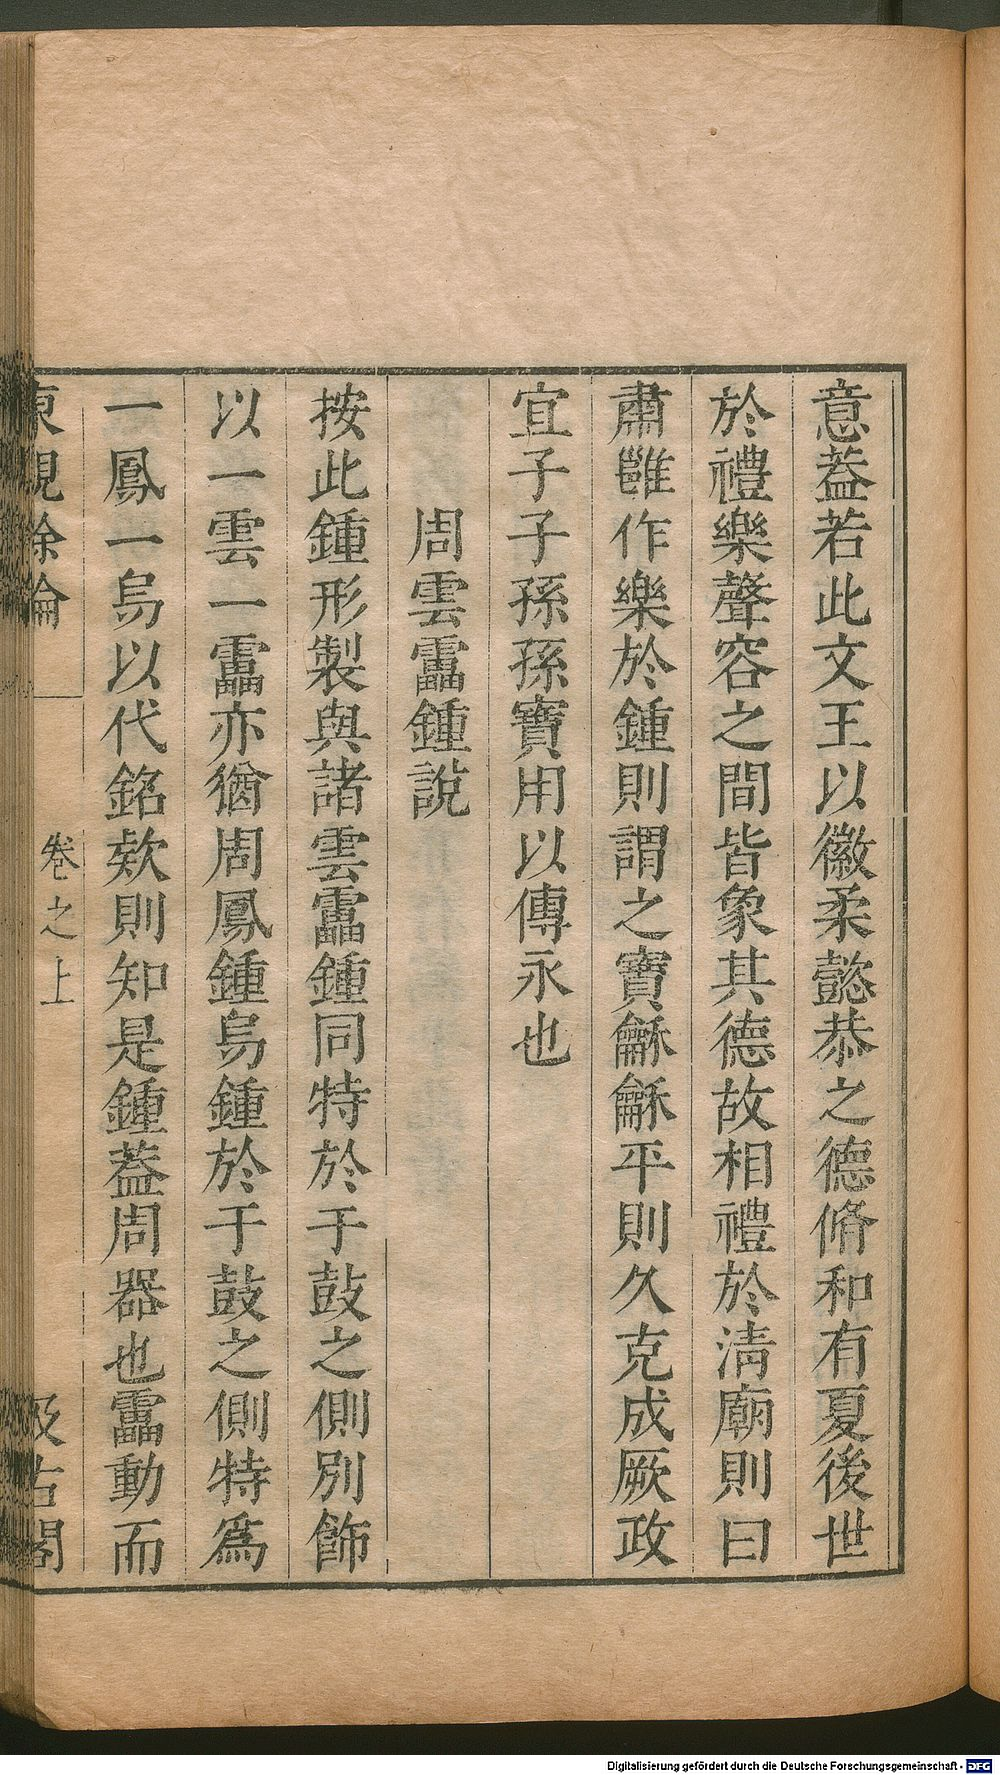 意葢若此文王以徽柔懿恭之德脩和有夏後世
於禮樂聲容之間皆象其德故相禮於淸廟則曰
肅雝作樂於鍾則謂之寶龢龢平則久克成厥政
宜子子孫孫寶用以傳永也
周雲靁鍾說
按此鍾形製與諸雲靁鍾同特於于鼓之側別飾
以一雲一靁亦猶周鳳鍾舃鍾於于鼓之側特爲
一鳳一舃以代銘欵則知是鍾葢周器也靁動而
東觀餘論
卷之上
汲古閣
Digitalisierung gefördert durch die Deutsche Forschungsgemeinschaft - DFG